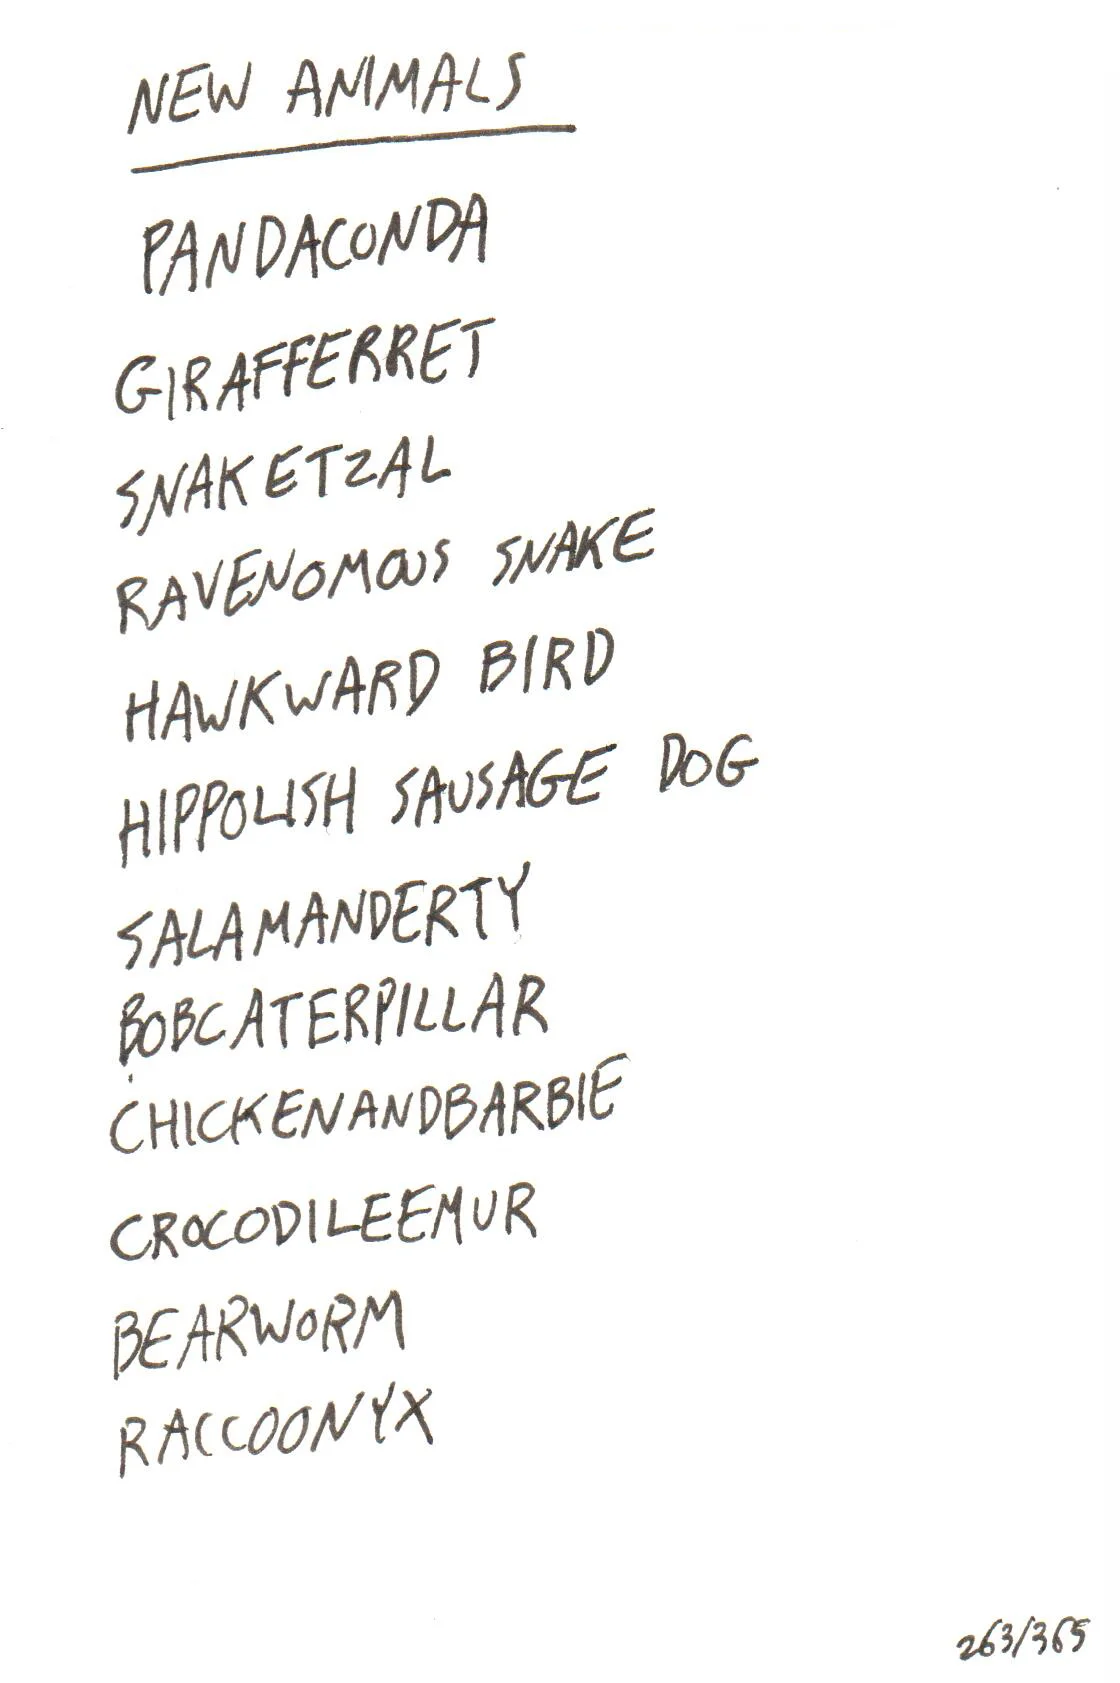 NEW ANIMALS
PANDACONDA
GIRAFFERRET
SNAKETZAL
RAVENOMOUS SNAKE
HAWKWARD BIRD
HIPPOLISH SAUSAGE DOG
SALAMANDERTY
BOBCATERPILLAR
CHICKENANDBARBIE
CROCODILEEMUR
BEARWORM
RACCOONYX
263/365